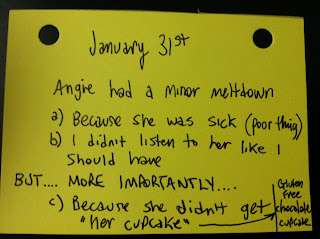 January 31st
Angie had a minor meltdown
a) Because she was sick (poor thing)
b) I didn't listen to her like I
should have
BUT.... MORE IMPORTANTLY....
c) Because she didn't get
"her cupcake"
Gluten
Free
chocolate
cupcake